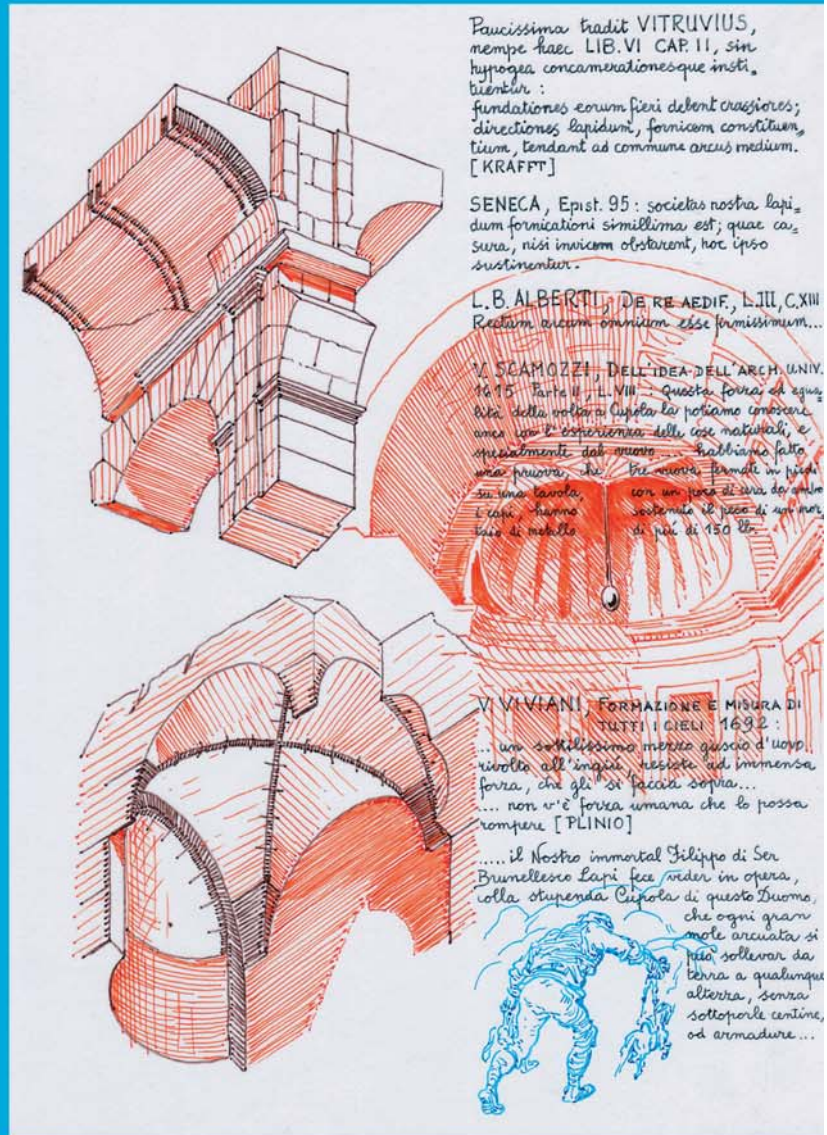 Paucissima tradit VITRUVIUS,
nempe haec LIB. VI CAP. II, sin
hypogea concamerationesque insti=
tuentur :
fundationes eorum fieri debent crassiores;
directiones lapidum, fornicem constituen=
tium, tendant ad commune arcus medium.
[KRAFFT]
SENECA, Epist. 95 : societas nostra lapi=
dum fornicationi simillima est; quae ca=
sura, nisi invicem obstarent, hoc ipso
sustinentur.
L. B. ALBERTI, DE RE AEDIF., L.III, C.XIII
Rectum arcum omnium esse firmissimum...
V. SCAMOZZI, DELL'IDEA DELL'ARCH. UNIV.
1615 Parte II, L. VIII Questa forza ed egua=
lità della volta a Cupola la potiamo conoscere
anco con l'esperienza delle cose naturali, e
specialmente dal nuovo .... habbiamo fatto
una pruova, che tre nuova fermate in piedi
su una tavola, con un poco di cera da ambo
i capi, hanno sostenuto il peso di un mor
taio di metallo di più di 150 lb.
V. VIVIANI, FORMAZIONE E MISURA DI
TUTTI I CIELI 1692 :
... un sottilissimo mezzo guscio d'uovo,
rivolto all'ingiù, resiste ad immensa
forza, che gli si faccia sopra...
.... non v'è forza umana che lo possa
rompere [PLINIO]
..... il Nostro immortal Filippo di Ser
Brunellesco Lapi fece veder in opera,
colla stupenda Cupola di questo Duomo,
che ogni gran
mole arcuata si
può sollevar da
terra a qualunque
altezza, senza
sottoporle centine,
od armadure ...